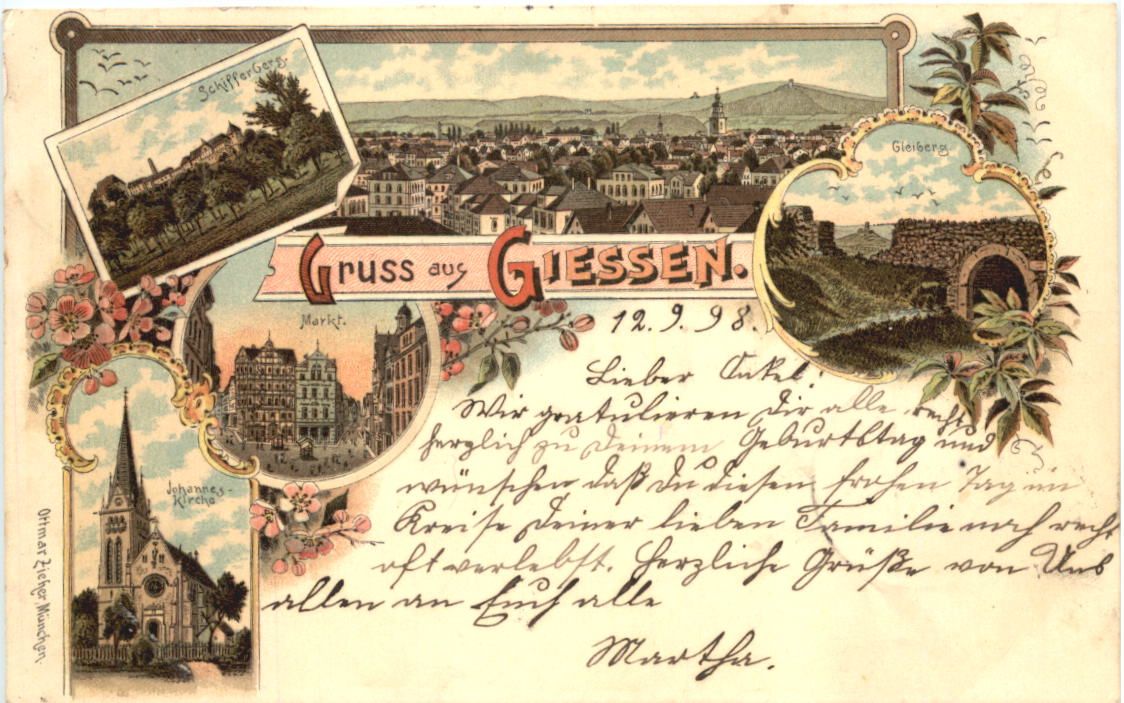 Schifferberg.
Gleiberg.
Gruss aus Giessen.
Markt.
Johannes-
Kirche
Ottmar Zieher, München.
12.9.98.
Lieber Onkel!
Wir gratulieren Dir alle recht
herzlich zu Deinem Geburtstag und
wünschen daß Du diesen frohen Tag im
Kreise Deiner lieben Familie noch recht
oft verlebst. Herzliche Grüße von Uns
allen an Euch alle
Martha.